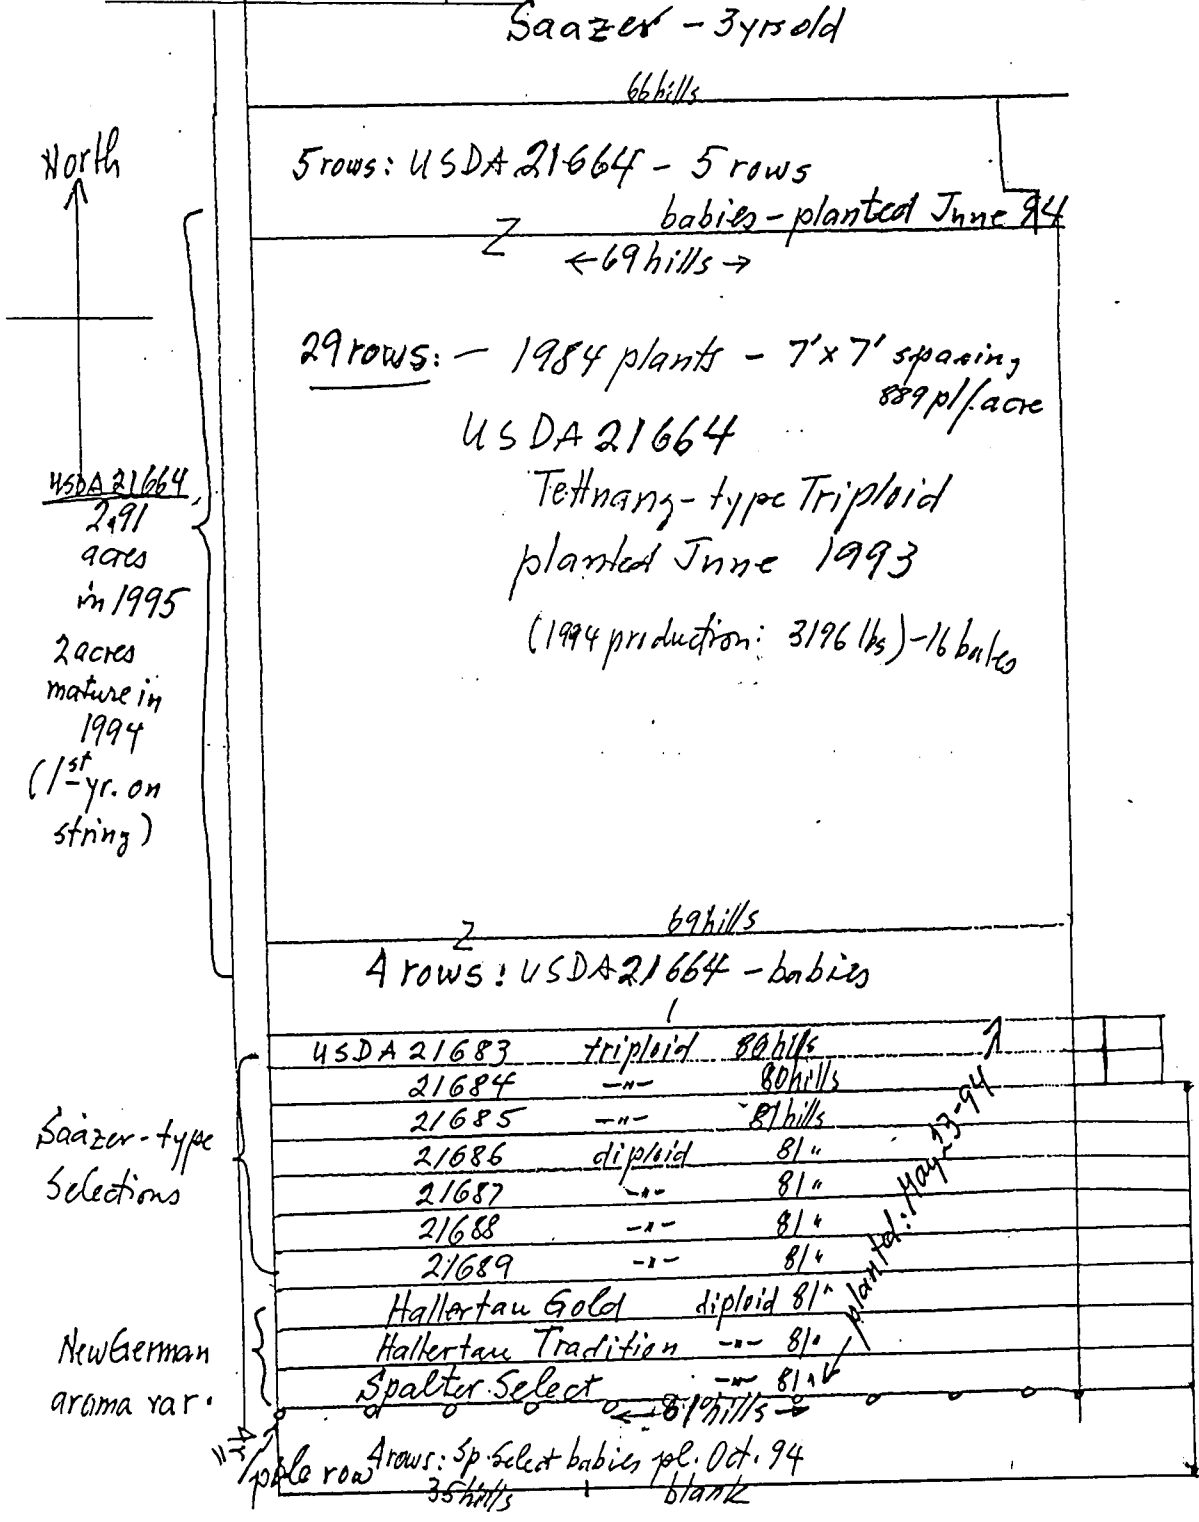 Saazer - 3yrs old
66 hills
North
5 rows: USDA 21664 - 5 rows
babies - planted June 94
Z
←69 hills→
29 rows: - 1984 plants - 7' x 7' spacing
889 pl/acre
USDA 21664
Tettnang-type Triploid
planted June 1993
(1994 production: 3196 lbs) - 16 bales
USDA 21664
2.91
acres
in 1995
2 acres
mature in
1994
(1st yr. on
string)
Z 69 hills
4 rows: USDA 21664 - babies
USDA 21683 triploid 80 hills
21684 -"- 80 hills
21685 -"- 81 hills
21686 diploid 81 "
21687 -"- 81 "
21688 -"- 81 "
21689 -"- 81 "
Saazer-type
Selections
Hallertau Gold diploid 81 "
Hallertau Tradition -"- 81 "
Spalter Select -"- 81 "
New German
aroma var.
planted: May 23-94
←81 hills→
pole row
4 rows: Sp. Select babies pl. Oct. 94
35 hills blank